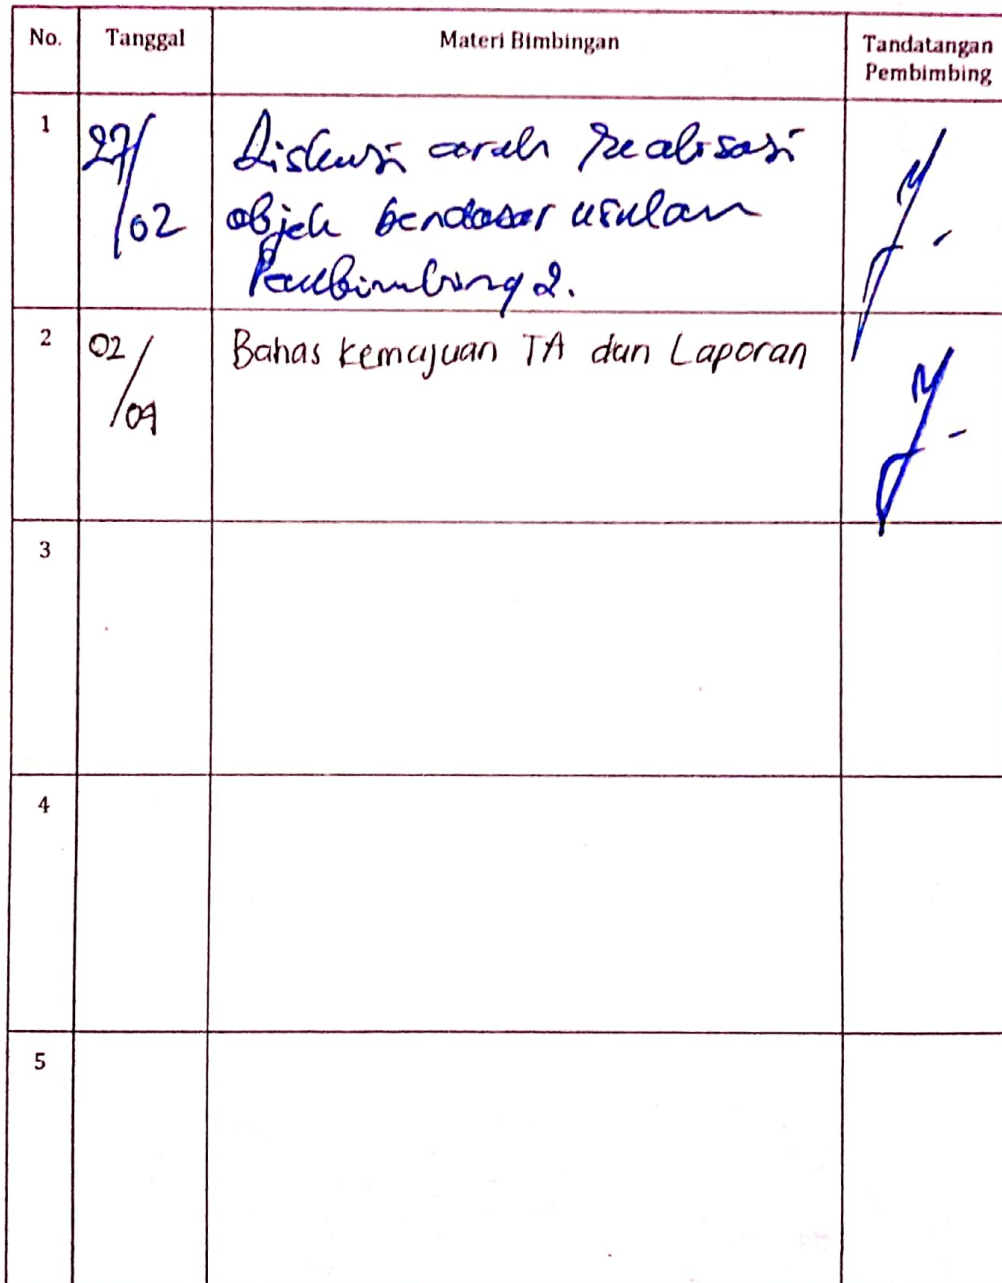 No. Tanggal Materi Bimbingan Tandatangan Pembimbing
1 27/02 Diskusi arah Realisasi
objek berdasar usulan
Pembimbing 2.
2 02/04 Bahas kemajuan TA dan Laporan
3
4
5